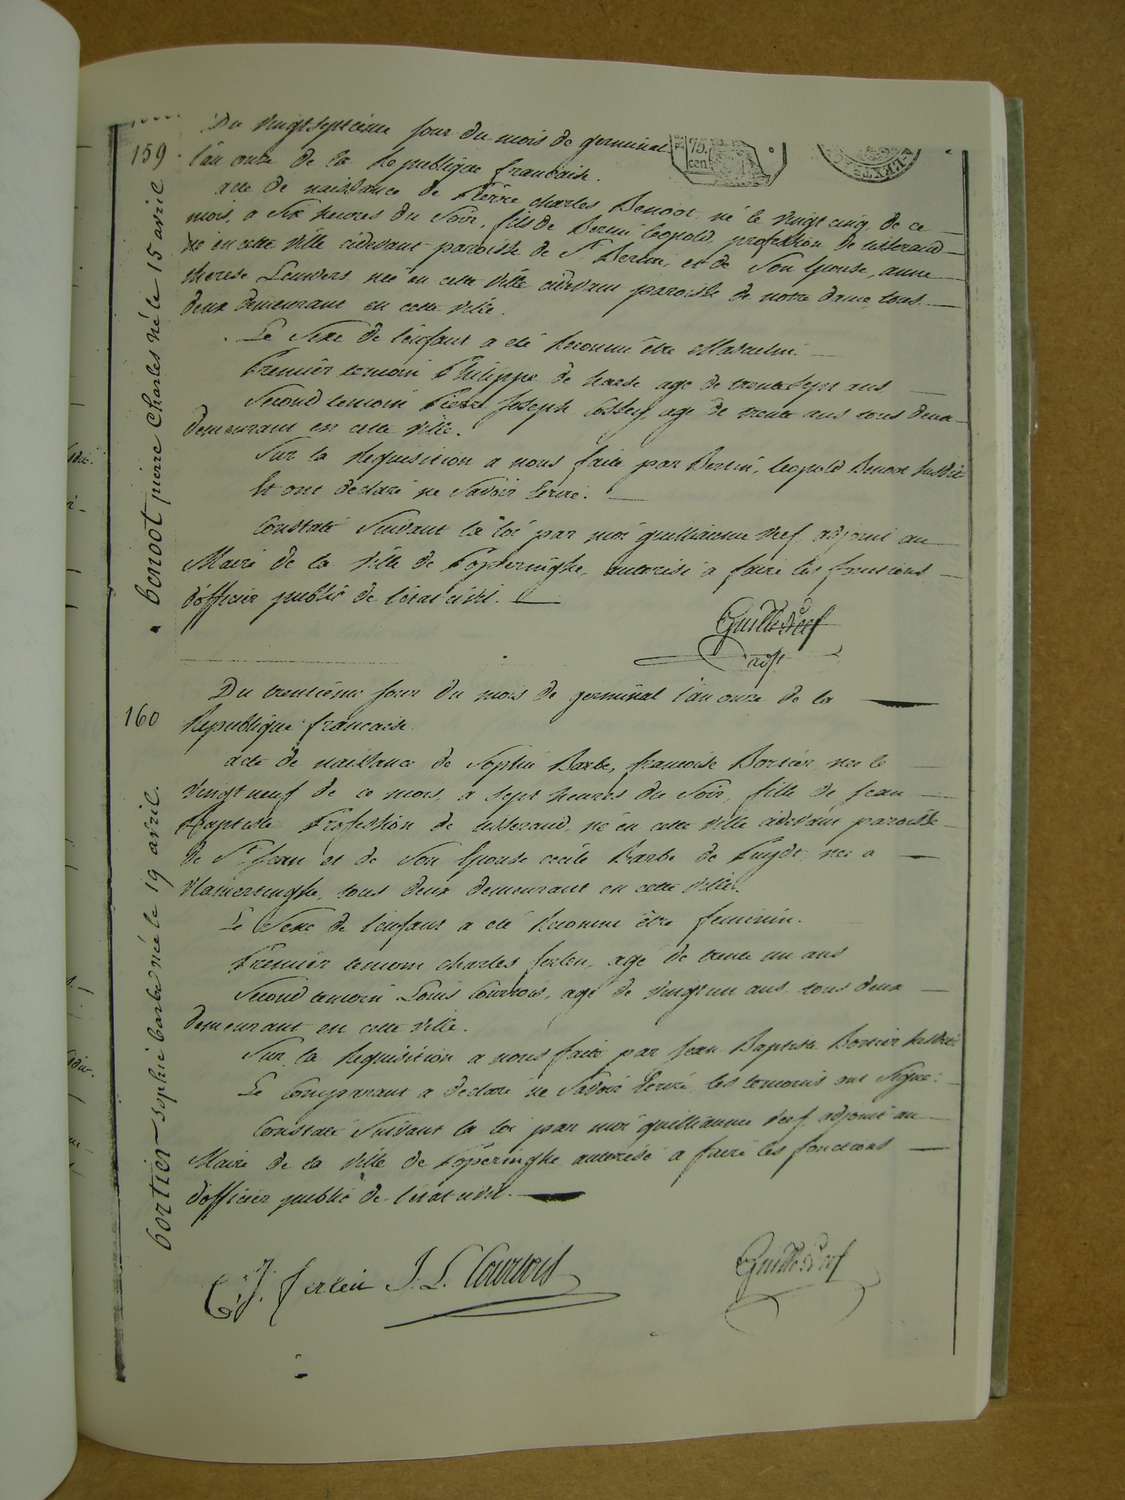 Du vingt septieme jour du mois de germinal
159
l'an onze de la Republique francaise.
75.
cen
acte de naissance de Pierre charles Benoot, né le vingt cinq de ce
mois, a six heures du soir, fils de Bertin Leopold, profession de tisserand
né en cette ville cidevant paroisse de St Bertin, et de son Epouse, anne
therese Leuwers née en cette ville cidevant paroisse de notre dame, tous
deux demeurant en cette ville.
Le Sexe de l'enfant a été Reconnu être Masculin
Premier temoin Philippe de harde age de trente sept ans
Second temoin Pierre Joseph age de trente ans tous deux
demeurant en cette ville.
Sur la Requisition a nous faite par Bertin Leopold Benoot susdit
Et ont déclaré ne savoir Ecrire.
Constaté Suivant la loi par moi guilliaume Werf adjoint au
Maire de la ville de Poperinghe, autorisé a faire les fonctions
d'officier public de l'état civil.
benoot pierre Charles né le 15 avril
160
Du trentieme jour du mois de germinal l'an onze de la
Republique francaise.
acte de naissance de Sophie Barbe francoise Bortier née le
vingt neuf de ce mois, a sept heures du soir, fille de Jean
Baptiste Profession de tisserand, né en cette ville cidevant paroisse
de St Jean et de son Epouse cecile Barbe de Puydt, née a
vlamertinghe, tous deux demeurant en cette ville.
Le Sexe de l'enfant a été Reconnu être feminin.
Premier temoin charles ferlein, age de trente un ans
Second temoin Louis Courtois, age de vingt un ans tous deux
demeurant en cette ville.
Sur la Requisition a nous faite par Jean Baptiste Bortier susdit
Le Comparant a declaré ne savoir Ecrire, les temoins ont signé:
Constaté Suivant la loi par moi guilliaume Werf adjoint au
Maire de la ville de Poperinghe autorisé a faire les fonctions
d'officier public de l'état civil.
bortier sophie barbe née le 19 avril.
C. J. ferlein J. L. Courtois